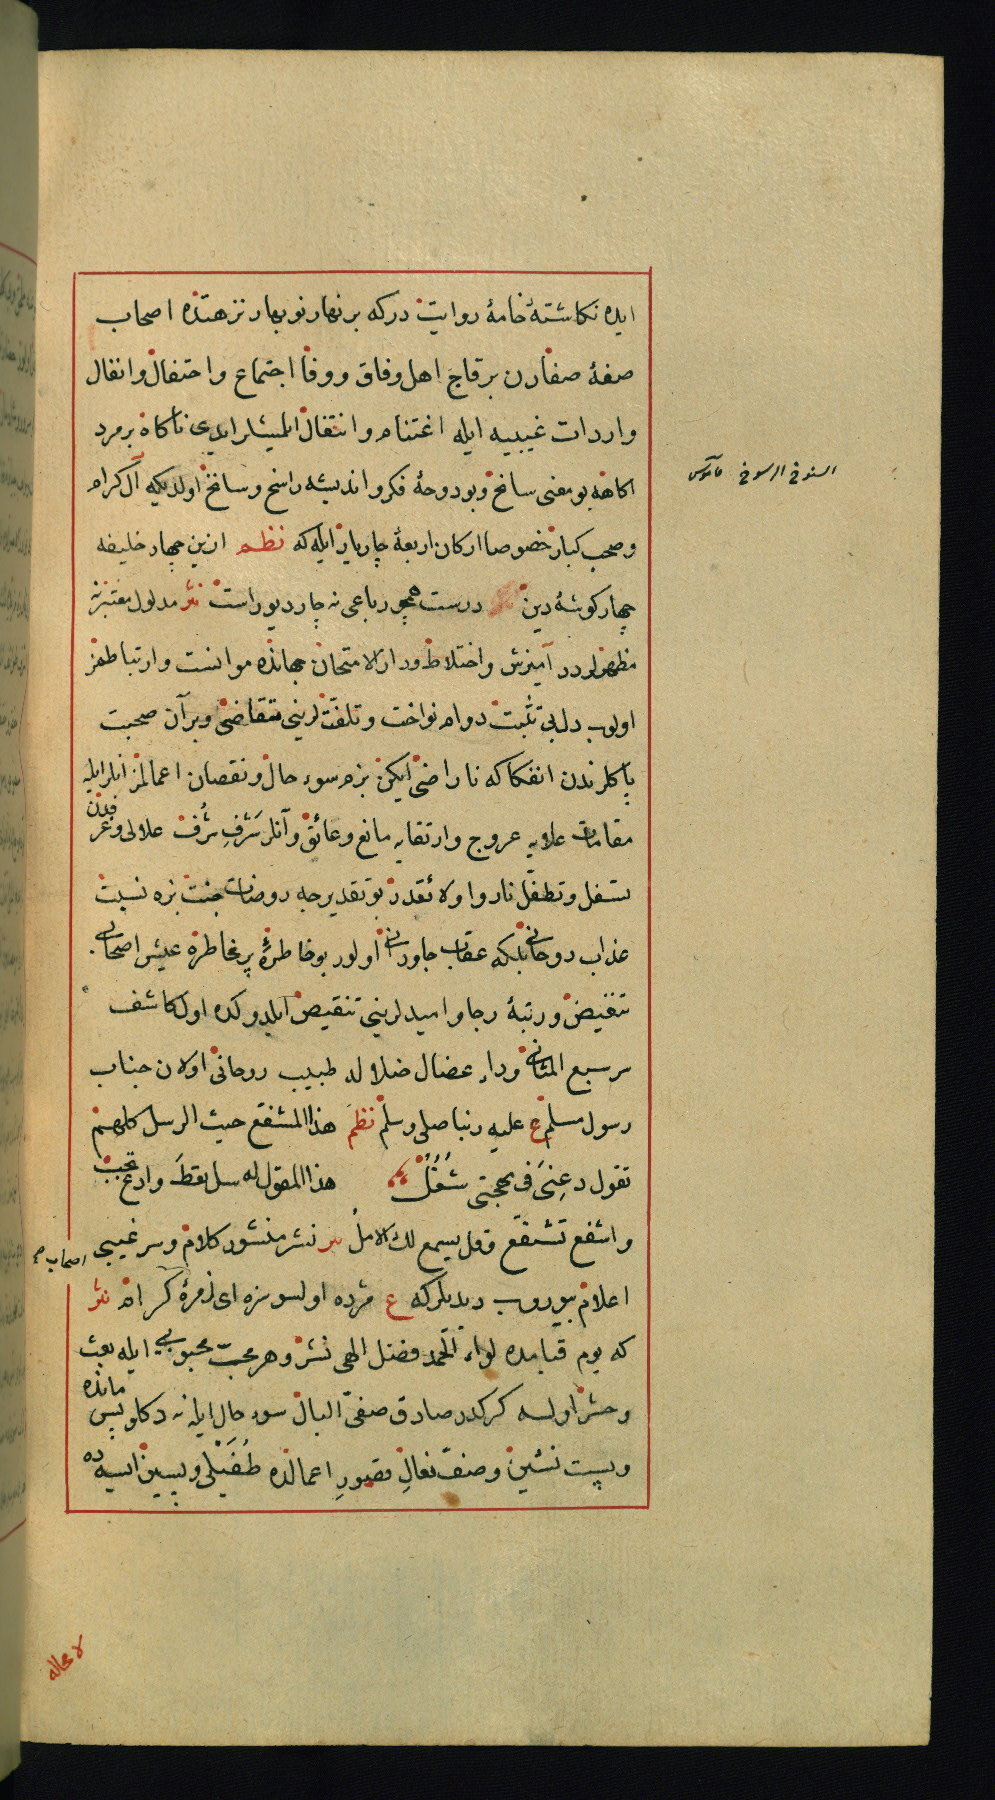 ایده نكاشتهٔ خامهٔ روایت در كه بر نهار نوبهار نزهتده اصحاب
صفهٔ صفادن برقاج اهل وفاق ووفا اجتماع واحتفال وانفال
واردات غیبیه ایله اغتنام وانتقال ایلمیشلر ایدی ناكاه برمرد
اكاهه بو معنی سانح وبو دوحهٔ فكر واندیشه راسخ وسانخ اولدیكه آل كرام
السنوخ الرسوخ قاموس
وصحب كبار خصوصا اركان اربعهٔ چاریار ایله كه نظم ازین چهار خلیفه
چهار كوشهٔ دین درست همچو رباعی نه چار دیوراست نثر مدلول معتبرنه
مظهرلردر آمیزش واختلاط ودار الامتحان جهانده موانست وارتباطمز
اولوب دل بی تثبت دوام نواخت وتلفتلرینی متقاضی وبرآن صحبت
پاكلرندن انفكاكه ناراضی ایكن بزم سوء حال ونقصان اعمالمز انلر ایله
مقامات علایه عروج وارتقایه مانع وعائق وآنلر شرف شُرف علالی وغرفدن
تسفل وتطفل ناروا ولائقدر بو تقدیرجه روضات جنت بزه نسبت
عذاب روحانی بلكه عقاب جاودانی اولور بو خاطرهٔ پرمخاطره عیش اصحابی
تنغیص ورتبهٔ رجا وامیدلرینی تنقیص ایلدوكده اول كاشف
سر سبع المثانی وداء عضال ضلاله طبیب روحانی اولان جناب
رسول مسلم ع علیه ربنا صلی وسلم نظم هذا المشفع حیث الرسل كلهم
تقول دعنی فی مهجتی شغل هذا المقول له سل تعط وادع تجب
واشفع تشفع وقل یسمع لك الامل نثر نشر منشور كلام وسر غیبی
اصحابه
اعلام بیوروب دیدیلر كه ع مژده اولسون سزه ای زمرهٔ كرام نثر
كه یوم قیامده لواء الحمد فضل الهی نشر وهر محب محبوبی ایله بعث
وحشر اولسه كركدر صادق صفی البال سوء حال ایله نه دكلو پس مانده
وپست نشین وصف نعال قصور اعمالده طفیلی وپسین ایسه ده
لا محاله